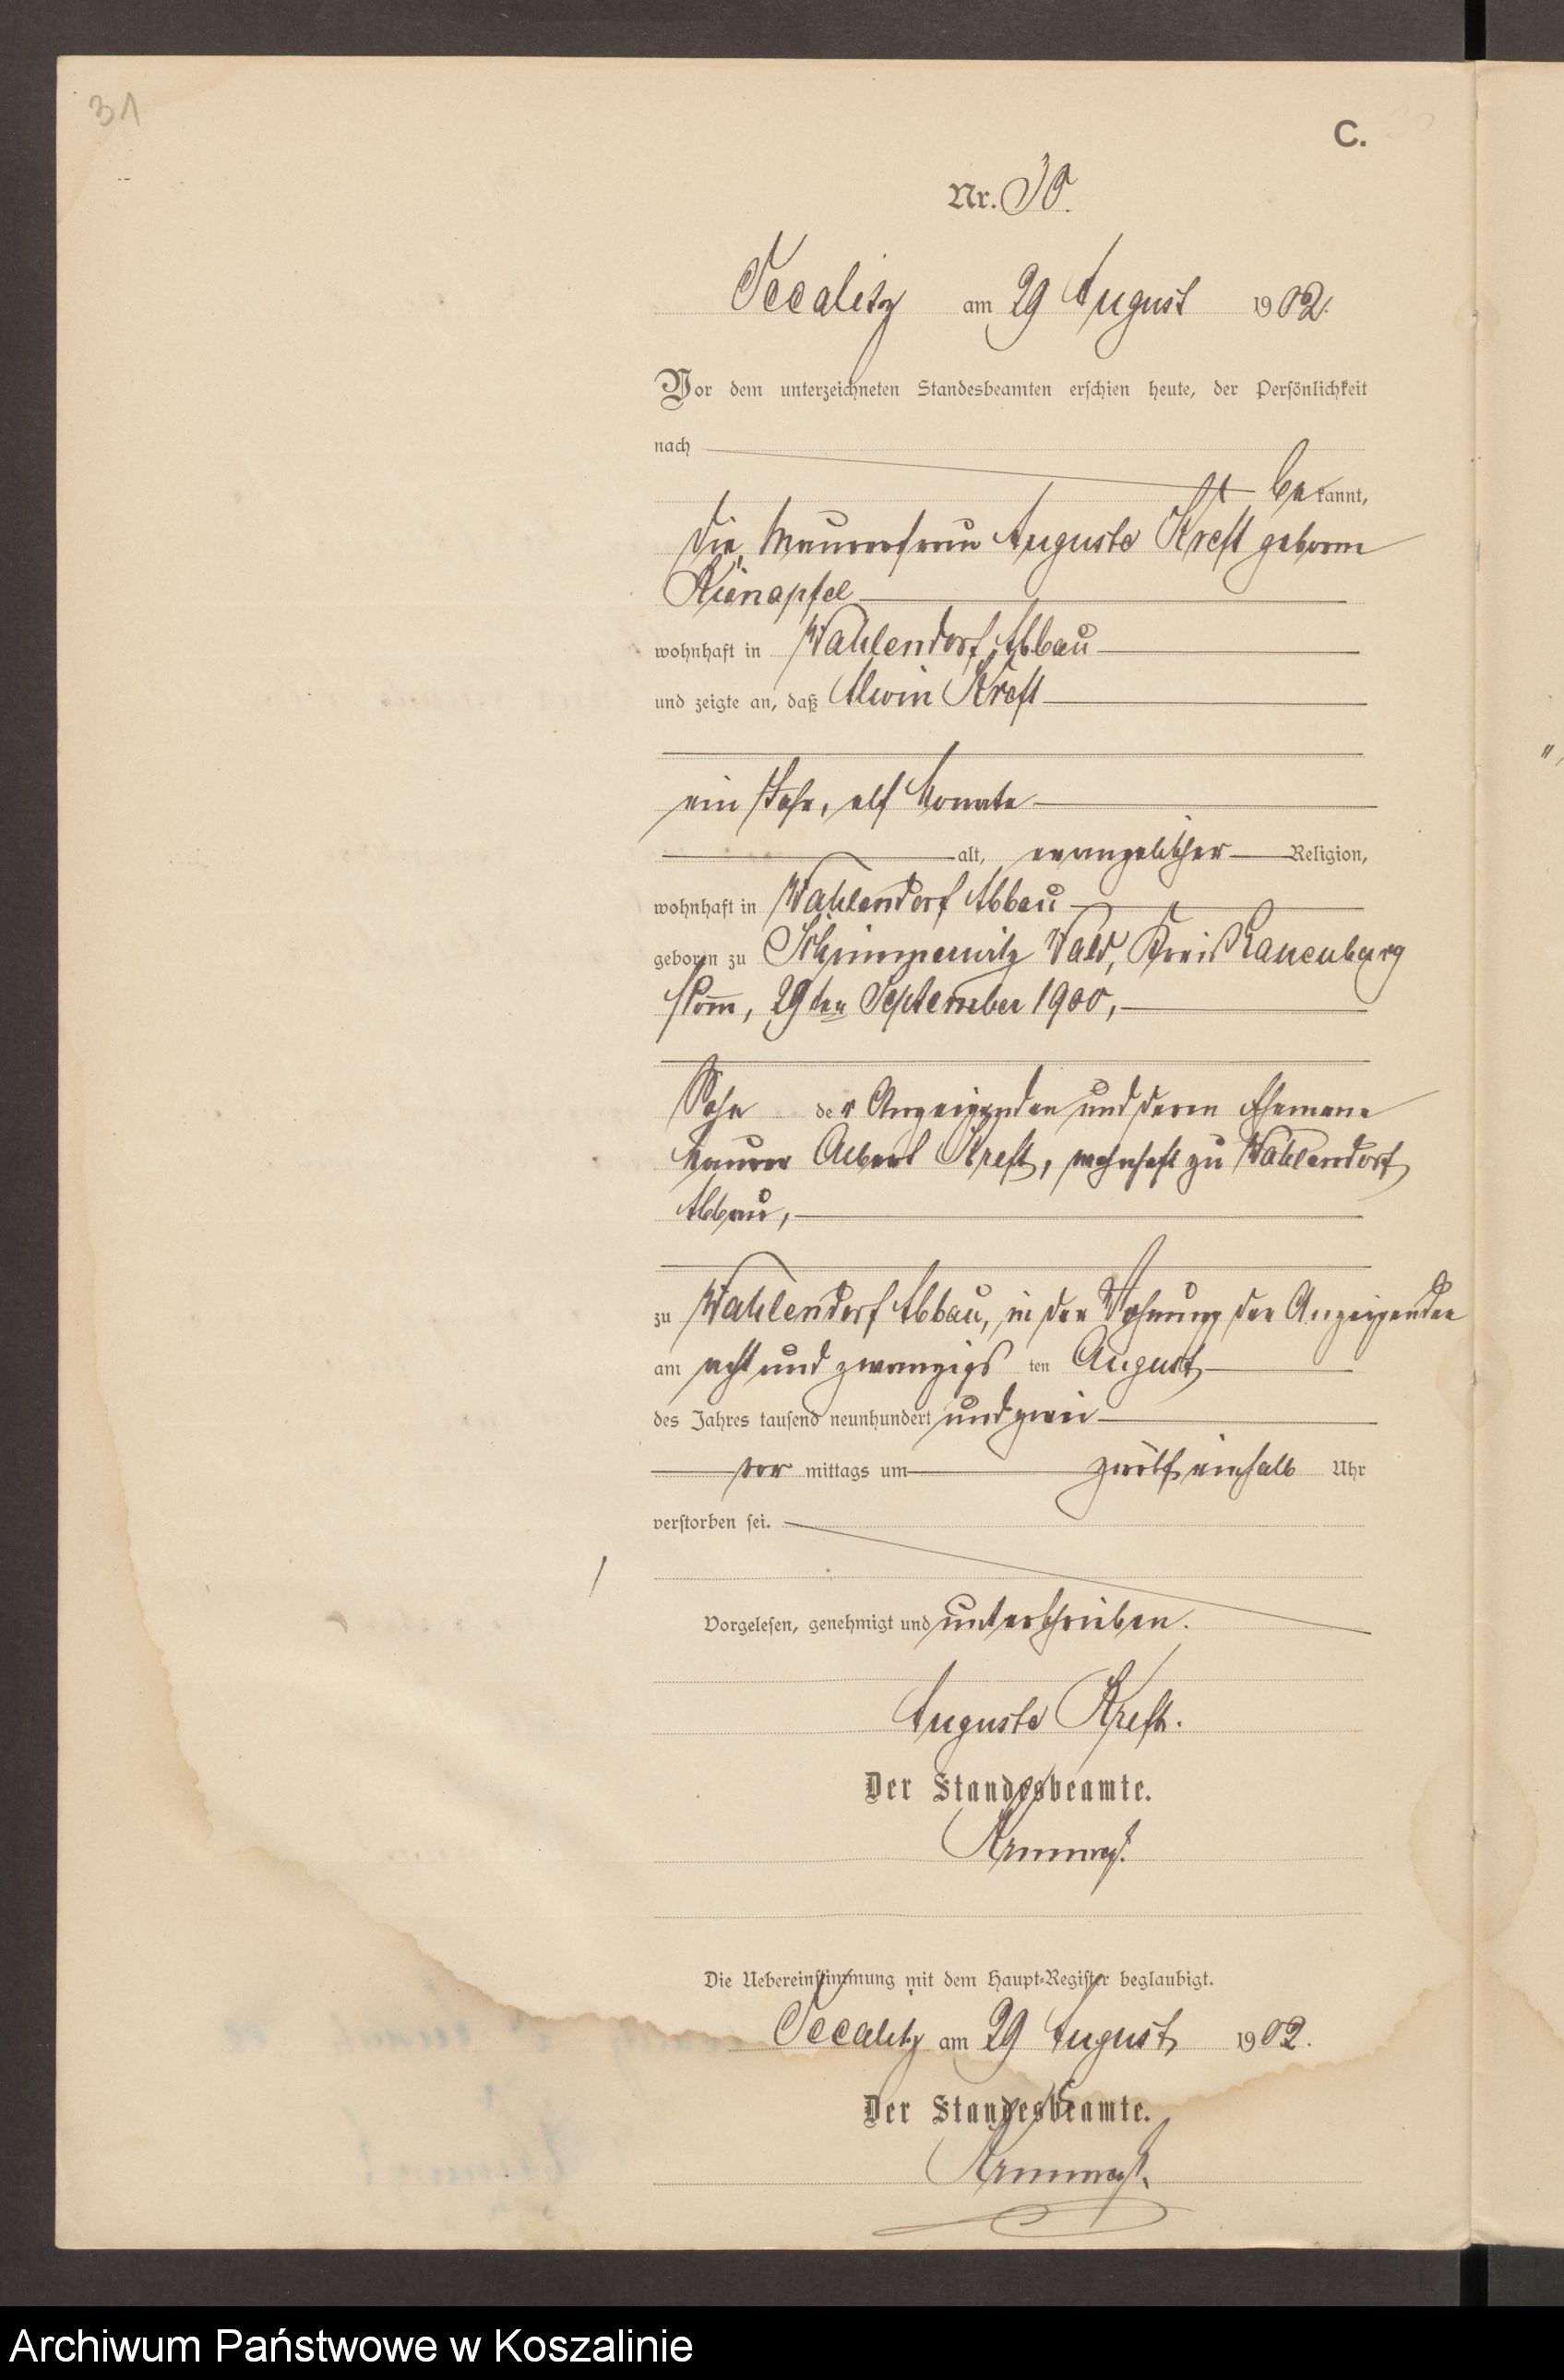 31
C.
Nr. 30.
Occalitz am 29 August 1902.
Vor dem unterzeichneten Standesbeamten erschien heute, der Persönlichkeit
nach
bekannt,
die Maurerfrau Auguste Kreft geborne
Kienapfel
wohnhaft in Wahlendorf, Abbau
und zeigte an, daß Alwin Kreft
ein Jahr, elf Monate
alt, evangelischer Religion,
wohnhaft in Wahlendorf Abbau
geboren zu Schimmerwitz Wald, Kreis Lauenburg
Pom, 29ten September 1900,
Sohn der Anzeigenden und deren Ehemann
Maurer Albert Kreft, wohnhaft zu Wahlendorf
Abbau,
zu Wahlendorf Abbau, in der Wohnung der Anzeigenden
am acht und zwanzigs ten August
des Jahres tausend neunhundert und zwei
vor mittags um zwölf einhalb Uhr
verstorben sei.
Vorgelesen, genehmigt und unterschrieben.
Auguste Kreft.
Der Standesbeamte.
Die Uebereinstimmung mit dem Haupt-Register beglaubigt.
Occalitz am 29 August 1902.
Der Standesbeamte.
Archiwum Państwowe w Koszalinie